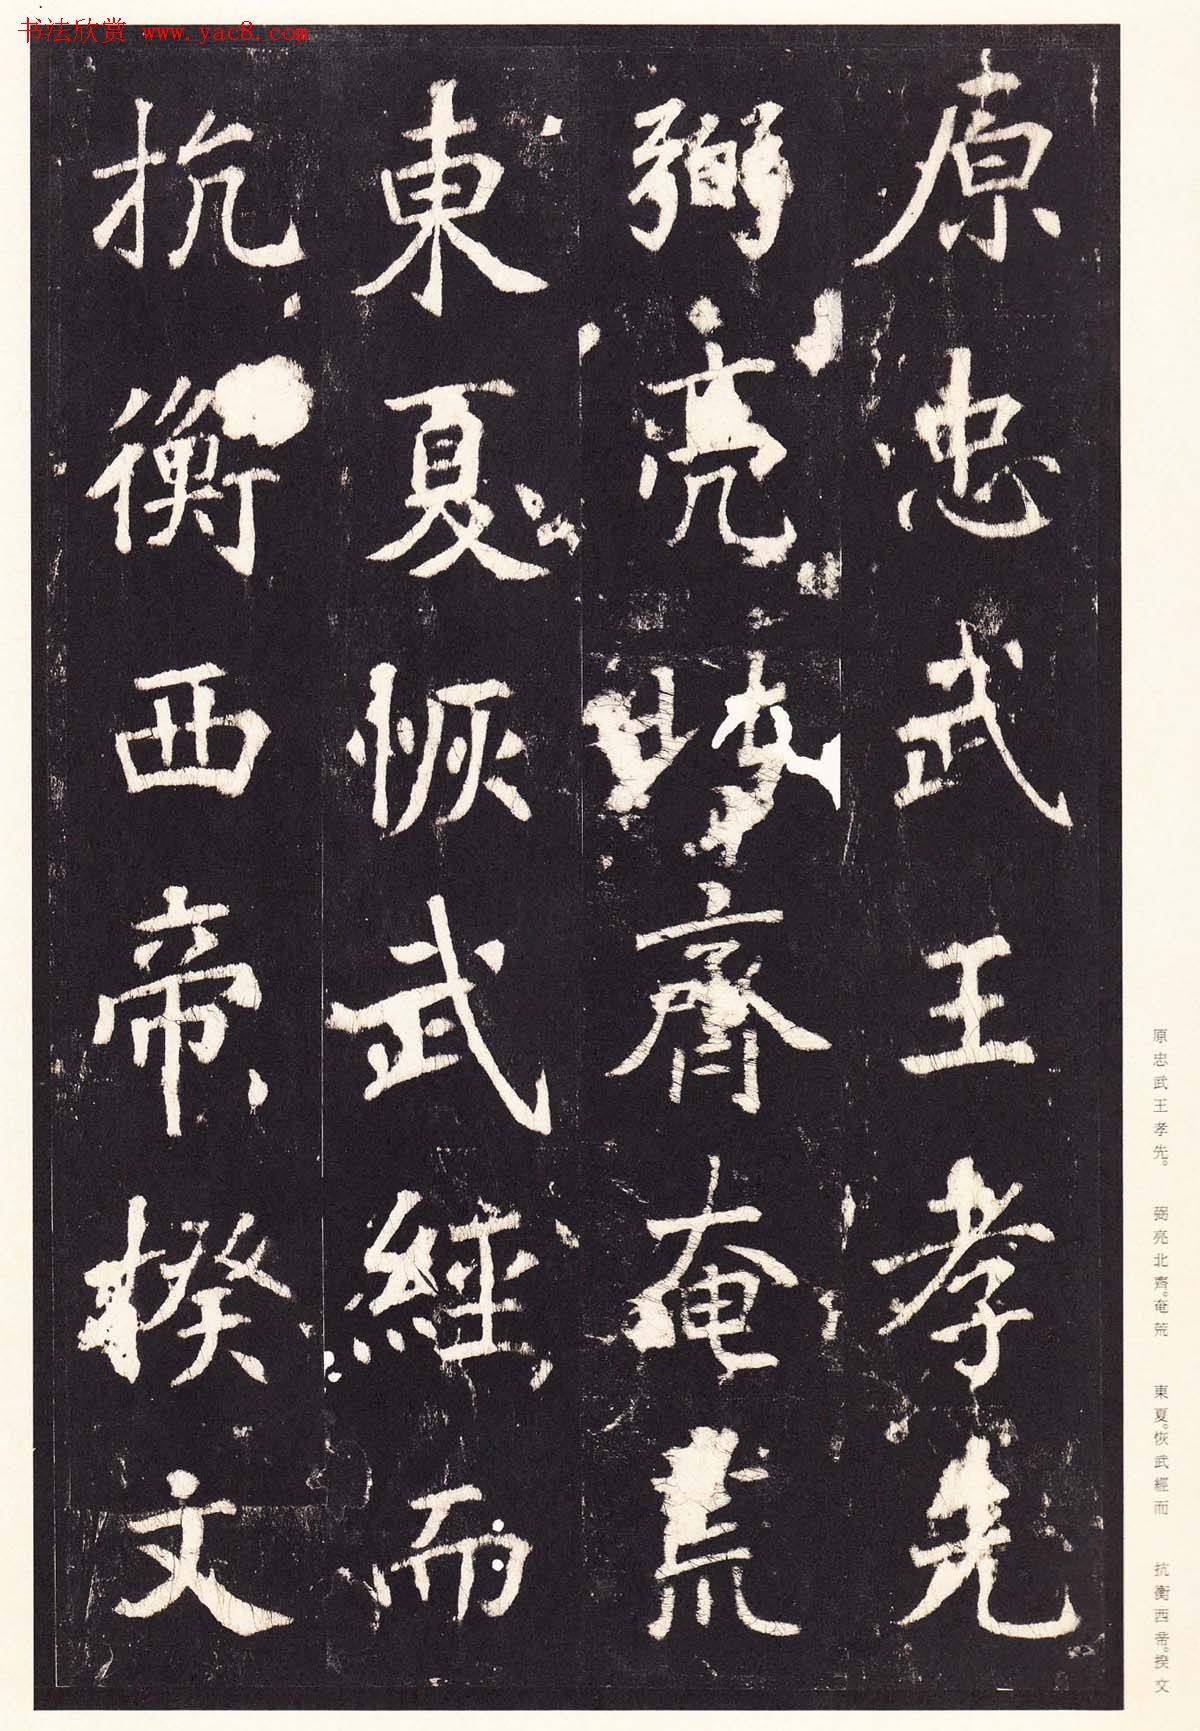 书法欣赏 www.yac8.com
原忠武王孝先
弼亮北齊奄荒
東夏恢武經而
抗衡西帝揆文
原忠武王孝先。 弼亮北齊。奄荒 東夏。恢武經而 抗衡西帝。揆文